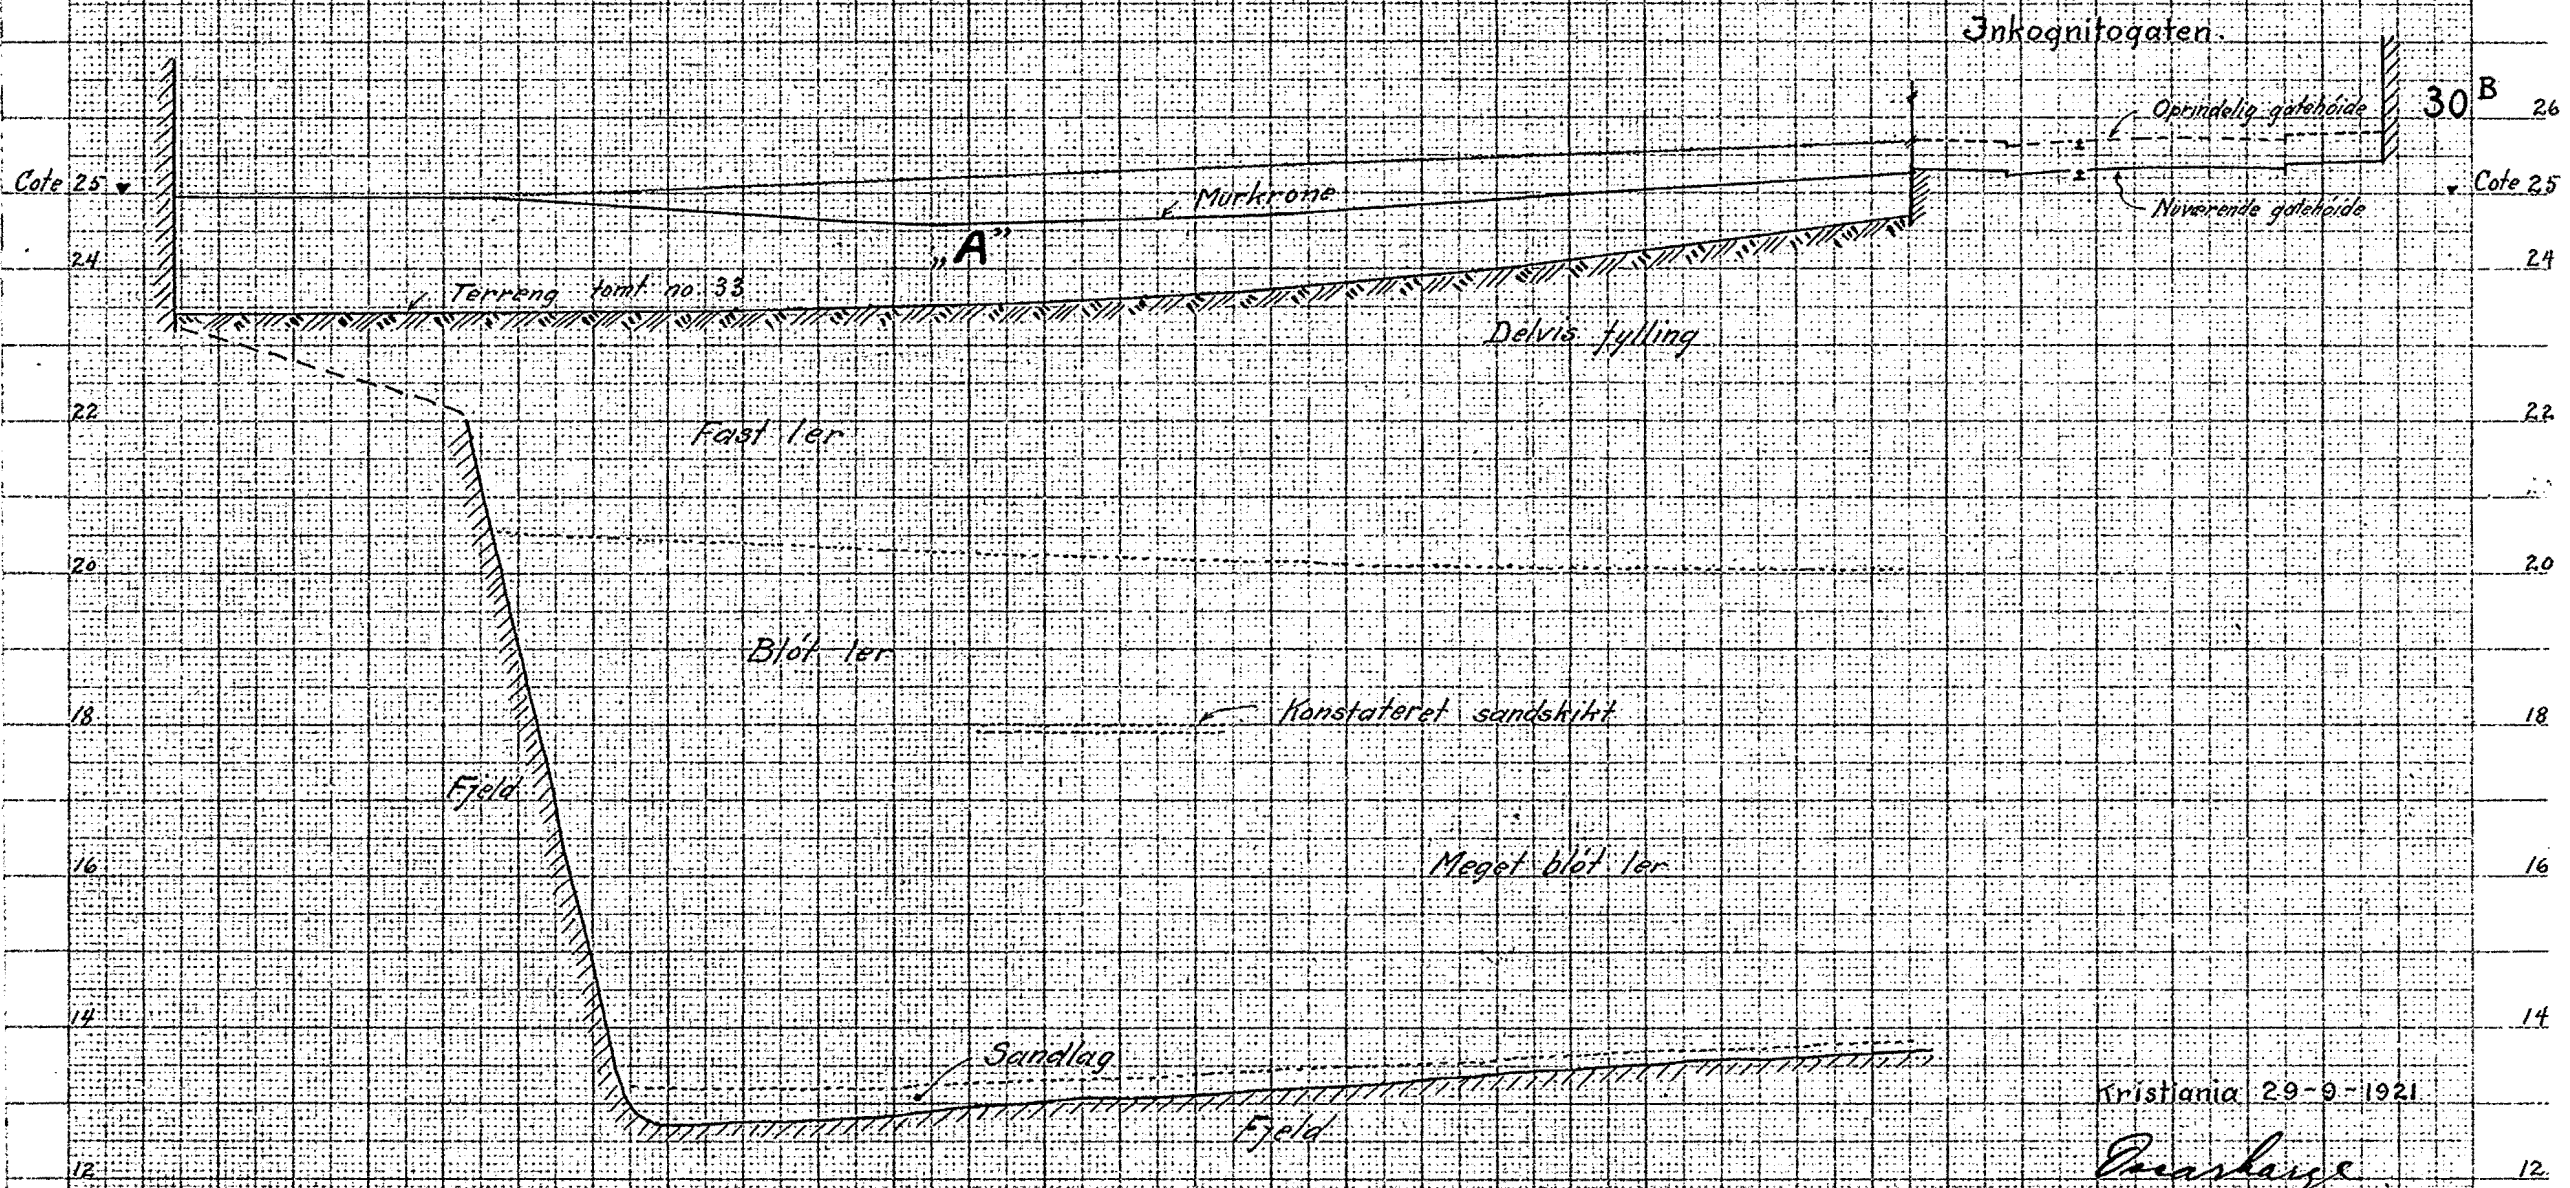 Inkognitogaten.
30 B
26
Oprindelig gatehöide
Cote 25
Murkrone
Cote 25
Nuværende gatehöide
„A”
24
24
Terreng tomt no 33
Delvis fylling
22
22
Fast ler
20
20
Blöt ler
Konstateret sandskikt
18
18
Fjeld
16
Meget blöt ler
16
14
14
Sandlag
Kristiania 29-9-1921
Fjeld
12
12